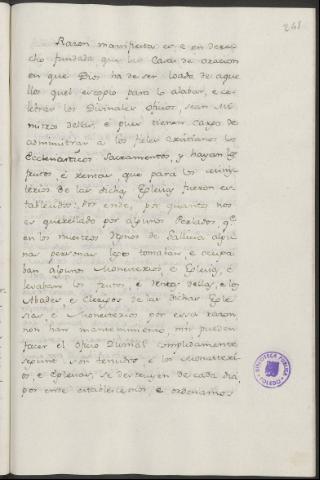 241
Razon manifiesta es, e en derecho fundada que las Casas de oracion
en que Dios ha de ser loado de aquellos quel escogio para lo alabar, e celebrar los Divinales oficios sean Ministros dellas, é pues tienen cargo de
administrar a los fieles cristianos los
Ecclesiasticos Sacramentos, y hayan los
frutos, é rentas, que para los ministerios de las dichas Eglesias fueron establecidos: Por ende, por quanto nos
es querellado por algunos Perlados, qe
en los nuestros Regnos de Gallicia algunas personas legos tomaban, e ocupaban algunos Monesterios, e Eglesias, é
levaban los frutos, e rentas dellas, e los
Abades, e Clerigos de las dichas Eglesias, e Monesterios por essa razon
non han mantenimiento, nin pueden
facer el Oficio Divinal complidamente
segunt son tenudos, e los Monasterios, e Eglesias, se destruyen de cada dia,
por ende establecemos, e ordenamos
BIBLIOTECA PUBLICA
TOLEDO